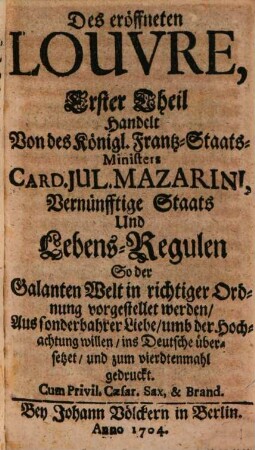 Des eröffneten
LOUVRE,
Erster Theil
Handelt
Von des Königl. Frantz-Staats-
Ministers
CARD. JUL. MAZARINI,
Vernünfftige Staats
Und
Lebens-Regulen
So der
Galanten Welt in richtiger Ord-
nung vorgestellet werden/
Aus sonderbahrer Liebe/ umb der Hoch-
achtung willen/ ins Deutsche über-
setzet/ und zum vierdtenmahl
gedruckt.
Cum Privil. Cæsar. Sax. & Brand.
Bey Johann Völckern in Berlin.
Anno 1704.